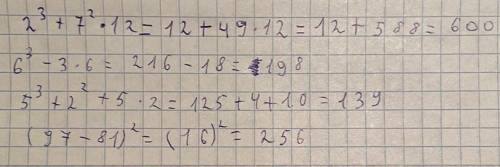 2³ + 7² · 12 = 12 + 49 · 12 = 12 + 588 = 600
6³ - 3 · 6 = 216 - 18 = 198
5³ + 2² + 5 · 2 = 125 + 4 + 10 = 139
(97 - 81)² = (16)² = 256